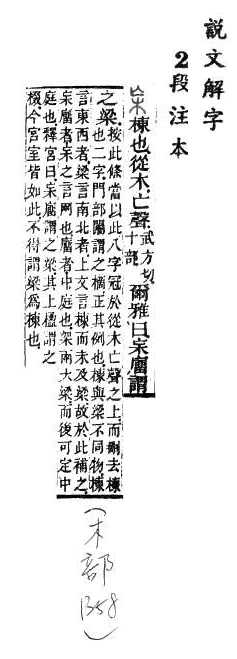 説文解字
2段注本
杗棟也從木亡聲、武方切、
十部、
爾雅曰杗廇謂
之梁、按此條當以此八字冠於從木亡聲之上、而刪去棟
也二字、門部閻謂之樀、正其例也、棟與梁不同物、棟
言東西者、梁言南北者、上文言棟而未及梁、故於此補之、
杗廇者、杗之言网也、廇者、中庭也、架兩大梁、而後可定中
庭也、釋宮曰、杗廇謂之梁、其上楹謂之
棳、今宮室皆如此、不得謂梁爲棟也、
(木部